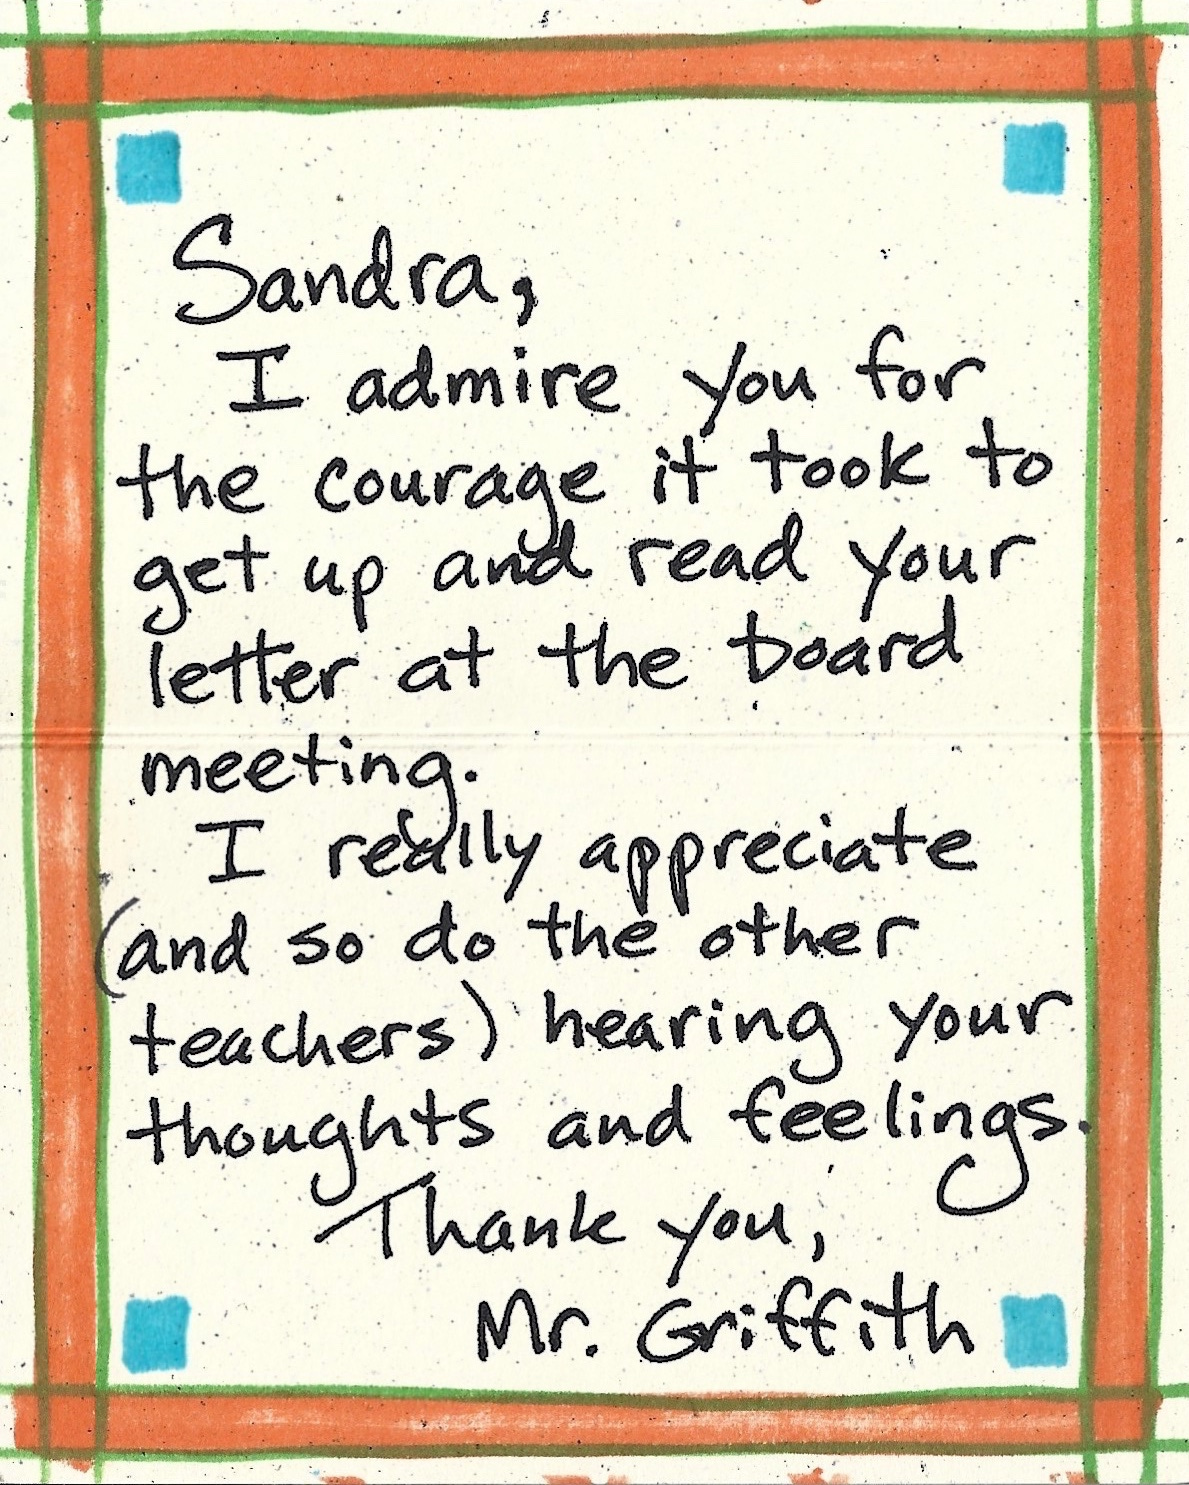 Sandra,
I admire you for
the courage it took to
get up and read your
letter at the board
meeting.
I really appreciate
(and so do the other
teachers) hearing your
thoughts and feelings.
Thank you,
Mr. Griffith